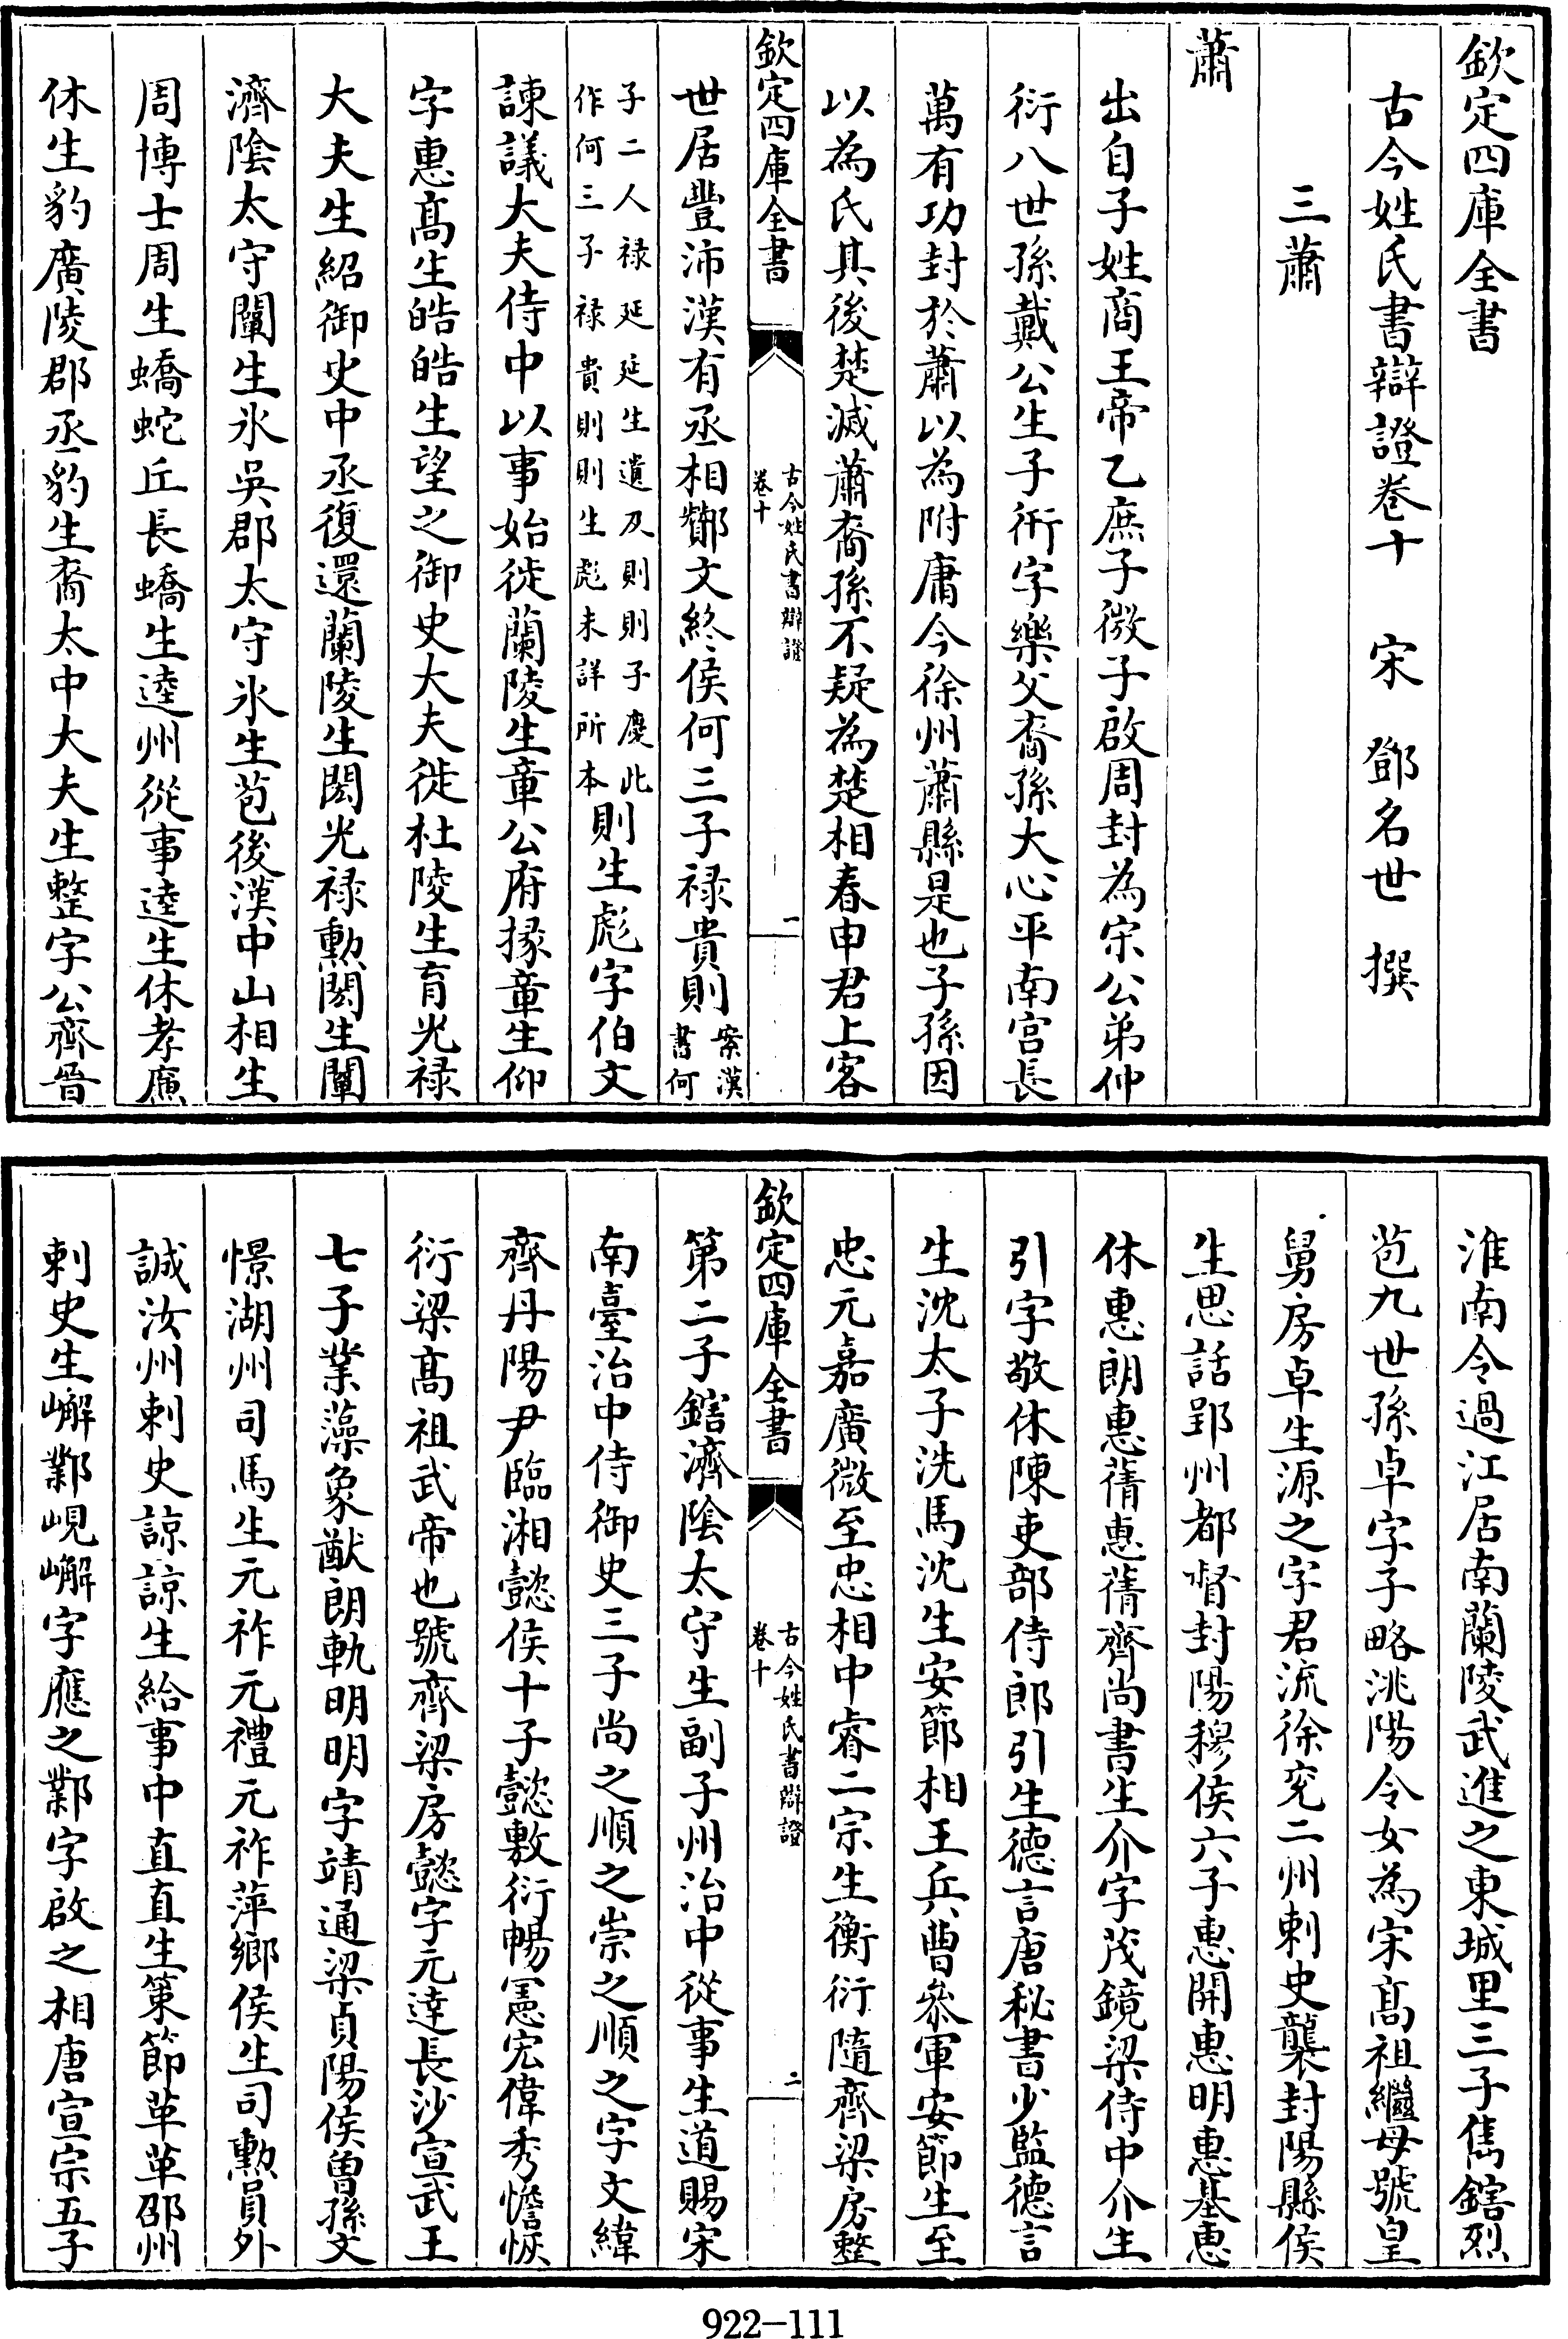 欽定四庫全書
古今姓氏書辯證卷十　宋　鄧名世　撰
三蕭
蕭
出自子姓商王帝乙庶子微子啟周封為宋公弟仲
衍八世孫戴公生子衎字樂父裔孫大心平南宫長
萬有功封於蕭以為附庸今徐州蕭縣是也子孫因
以為氏其後楚滅蕭裔孫不疑為楚相春申君上客
欽定四庫全書
古今姓氏書辯證
卷十
一
世居豐沛漢有丞相酇文終侯何三子禄貴則案漢書何
子二人禄延延生遺及則則子慶此作何三子禄貴則則生彪未詳所本則生彪字伯文
諫議大夫侍中以事始徙蘭陵生章公府掾章生仰
字惠髙生皓皓生望之御史大夫徙杜陵生育光禄
大夫生紹御史中丞復還蘭陵生閎光禄勲閎生闡
濟隂太守闡生氷吳郡太守氷生苞後漢中山相生
周博士周生蟜蛇丘長蟜生逵州從事逵生休孝廉
休生豹廣陵郡丞豹生裔太中大夫生整字公齊晉
淮南令過江居南蘭陵武進之東城里三子儁鎋烈
苞九世孫卓字子略洮陽令女為宋髙祖繼母號皇
舅房卓生源之字君流徐兖二州刺史襲封陽縣侯
生思話郢州都督封陽穆侯六子惠開惠明惠基惠
休惠朗惠蒨惠蒨齊尚書生介字茂鏡梁侍中介生
引字敬休陳吏部侍郎引生德言唐秘書少監德言
生沈太子洗馬沈生安節相王兵曹叅軍安節生至
忠元嘉廣微至忠相中睿二宗生衡衍隨齊梁房整
欽定四庫全書
古今姓氏書辯證
卷十
二
第二子鎋濟隂太守生副子州治中從事生道賜宋
南臺治中侍御史三子尚之順之崇之順之字文緯
齊丹陽尹臨湘懿侯十子懿敷衍暢憲宏偉秀憺恢
衍梁髙祖武帝也號齊梁房懿字元逹長沙宣武王
七子業藻象猷朗軌明明字靖通梁貞陽侯曾孫文
憬湖州司馬生元祚元禮元祚萍鄉侯生司勲員外
誠汝州刺史諒諒生給事中直直生策節革革邵州
刺史生嶰鄴峴嶰字應之鄴字啟之相唐宣宗五子
922-111